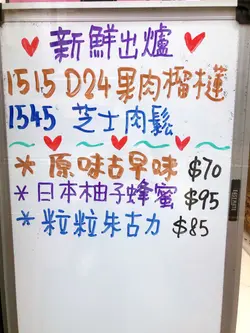 新鮮出爐
1515 D24果肉榴槤
1545 芝士肉鬆
* 原味古早味 $70
* 日本柚子蜂蜜 $95
* 粒粒朱古力 $85